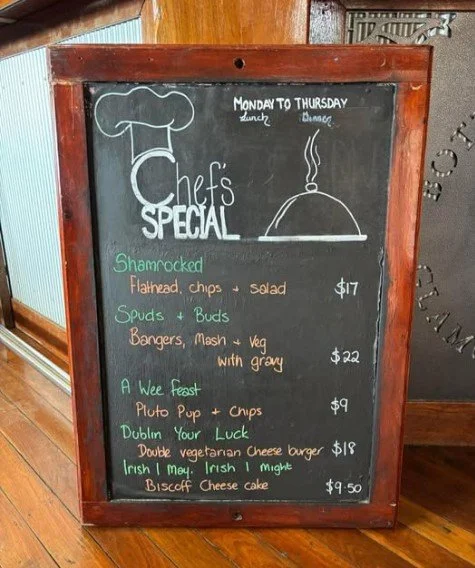 MONDAY TO THURSDAY
Lunch Dinner
Chef's
SPECIAL
Shamrocked
Flathead, chips + salad $17
Spuds + Buds
Bangers, Mash + Veg
with gravy $22
A Wee feast
Pluto Pup + Chips $9
Dublin Your Luck
Double vegetarian Cheese burger $18
Irish I May. Irish I might
Biscoff Cheese cake $9.50